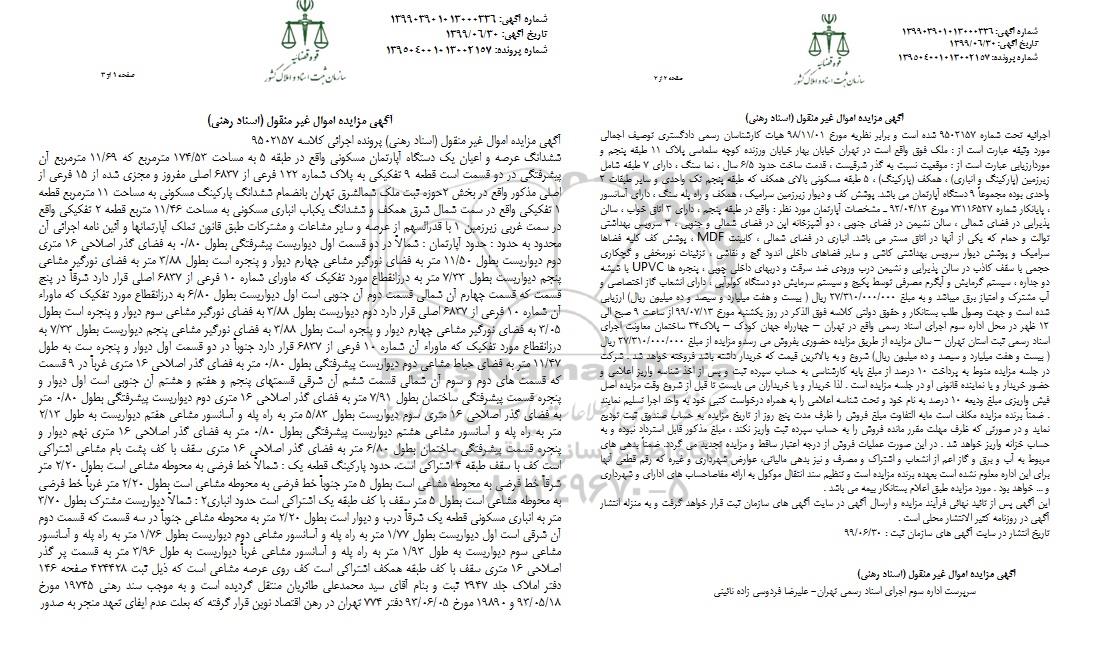 شماره آگهی: ۱۳۹۹۰۳۹۰۱۰۱۳۰۰۰۳۳۶
تاریخ آگهی: ۱۳۹۹/۰۶/۳۰
شماره پرونده: ۱۳۹۵۰۴۰۰۱۰۱۳۰۰۲۱۵۷
قوه قضائیه
سازمان ثبت اسناد و املاک کشور
صفحه ۱ از ۲
آگهی مزایده اموال غیر منقول (اسناد رهنی)
آگهی مزایده اموال غیر منقول (اسناد رهنی) پرونده اجرائی کلاسه ۹۵۰۲۱۵۷
ششدانگ عرصه و اعیان یک دستگاه آپارتمان مسکونی واقع در طبقه ۵ به مساحت ۱۷۴/۵۳ مترمربع که ۱۱/۶۹ مترمربع آن
پیشرفتگی در دو قسمت است قطعه ۹ تفکیکی به پلاک شماره ۱۲۲ فرعی از ۶۸۳۷ اصلی مفروز و مجزی شده از ۱۵ فرعی از
اصلی مذکور واقع در بخش ۲حوزه ثبت ملک شمالشرق تهران بانضمام ششدانگ پارکینگ مسکونی به مساحت ۱۱ مترمربع قطعه
۱ تفکیکی واقع در سمت شمال شرق همکف و ششدانگ یکباب انباری مسکونی به مساحت ۱۱/۴۶ متربع قطعه ۲ تفکیکی واقع
در سمت غربی زیرزمین ۱ با قدرالسهم از عرصه و سایر مشاعات و مشترکات طبق قانون تملک آپارتمانها و آئین نامه اجرائی آن
محدود به حدود : حدود آپارتمان : شمالاً در دو قسمت اول دیواریست پیشرفتگی بطول ۰/۸۰ به فضای گذر اصلاحی ۱۶ متری
دوم دیواریست بطول ۱۱/۵۰ متر به فضای نورگیر مشاعی چهارم دیوار و پنجره است بطول ۳/۸۸ متر به فضای نورگیر مشاعی
پنجم دیواریست بطول ۷/۳۳ متر به درزانقطاع مورد تفکیک که ماورای شماره ۱۰ فرعی از ۶۸۳۷ اصلی قرار دارد شرقاً در پنج
قسمت که قسمت چهارم آن شمالی قسمت دوم آن جنوبی است اول دیواریست بطول ۶/۸۰ به درزانقطاع مورد تفکیک که ماوراء
آن شماره ۱۰ فرعی از ۶۸۳۷ اصلی قرار دارد دوم دیواریست بطول ۳/۸۸ به فضای نورگیر مشاعی سوم دیوار و پنجره است بطول
۳/۰۵ به فضای نورگیر مشاعی چهارم دیوار و پنجره است بطول ۳/۸۸ به فضای نورگیر مشاعی پنجم دیواریست بطول ۷/۳۳ به
درزانقطاع مورد تفکیک که ماوراء آن شماره ۱۰ فرعی از ۶۸۳۷ قرار دارد جنوباً در دو قسمت اول دیوار و پنجره ست به طول
۱۱/۴۷ متر به فضای حیاط مشاعی دوم دیواریست پیشرفتگی بطول ۰/۸۰ متر به فضای گذر اصلاحی ۱۶ متری غرباً در ۹ قسمت
که قسمت های دوم و سوم آن شمالی قسمت ششم آن شرقی قسمتهای پنجم و هفتم و هشتم آن جنوبی است اول دیوار و
پنجره قسمت پیشرفتگی ساختمان بطول ۷/۹۱ متر به فضای گذر اصلاحی ۱۶ متری دوم دیواریست پیشرفتگی بطول ۰/۸۰ متر
به فضای گذر اصلاحی ۱۶ متری سوم دیواریست بطول ۵/۸۳ متر به راه پله و آسانسور مشاعی هفتم دیواریست به طول ۲/۱۳
متر به راه پله و آسانسور مشاعی هشتم دیواریست پیشرفتگی بطول ۰/۸۰ متر به فضای گذر اصلاحی ۱۶ متری نهم دیوار و
پنجره قسمت پیشرفتگی ساختمان بطول ۶/۸۰ متر به فضای گذر اصلاحی ۱۶ متری سقف با کف پشت بام مشاعی اشتراکی
است کف با سقف طبقه ۴ اشتراکی است. حدود پارکینگ قطعه یک : شمالاً خط فرضی به محوطه مشاعی است بطول ۲/۲۰ متر
شرقاً خط فرضی به محوطه مشاعی است بطول ۵ متر جنوباً خط فرضی به محوطه مشاعی است بطول ۲/۲۰ متر غرباً خط فرضی
به محوطه مشاعی است بطول ۵ متر سقف با کف طبقه یک اشتراکی است حدود انباری۲ : شمالاً دیواریست مشترک بطول ۳/۷۰
متر به انباری مسکونی قطعه یک شرقاً درب و دیوار است بطول ۲/۲۰ متر به محوطه مشاعی جنوباً در سه قسمت که قسمت دوم
آن شرقی است اول دیواریست بطول ۱/۷۷ متر به راه پله و آسانسور مشاعی دوم دیواریست بطول ۱/۷۶ متر به راه پله و آسانسور
مشاعی سوم دیواریست به طول ۱/۹۳ متر به راه پله و آسانسور مشاعی غرباً دیواریست به طول ۳/۹۶ متر به قسمت پر گذر
اصلاحی ۱۶ متری سقف با کف طبقه همکف اشتراکی است کف روی عرصه مشاعی است که ذیل ثبت ۴۲۴۴۲۸ صفحه ۱۴۶
دفتر املاک جلد ۲۹۴۷ ثبت و بنام آقای سید محمدعلی طائریان منتقل گردیده است و به موجب سند رهنی ۱۹۷۴۵ مورخ
۹۳/۰۵/۱۸ و ۱۹۸۹۰ مورخ ۹۳/۰۶/۰۵ دفتر ۷۷۴ تهران در رهن اقتصاد نوین قرار گرفته که بعلت عدم ایفای تعهد منجر به صدور
شماره آگهی: ۱۳۹۹۰۳۹۰۱۰۱۳۰۰۰۳۳۶
تاریخ آگهی: ۱۳۹۹/۰۶/۳۰
شماره پرونده: ۱۳۹۵۰۴۰۰۱۰۱۳۰۰۲۱۵۷
قوه قضائیه
سازمان ثبت اسناد و املاک کشور
صفحه ۲ از ۲
آگهی مزایده اموال غیر منقول (اسناد رهنی)
اجرائیه تحت شماره ۹۵۰۲۱۵۷ شده است و برابر نظریه مورخ ۹۸/۱۱/۰۱ هیات کارشناسان رسمی دادگستری توصیف اجمالی
مورد وثیقه عبارت است از : ملک فوق واقع است در تهران خیابان بهار خیابان ورزنده کوچه سلماسی پلاک ۱۱ طبقه پنجم و
موردارزیابی عبارت است از : موقعیت نسبت به گذر شرقیست ، قدمت ساخت حدود ۶/۵ سال ، نما سنگ ، دارای ۷ طبقه شامل
زیرزمین (پارکینگ و انباری) ، همکف (پارکینگ) ، ۵ طبقه مسکونی بالای همکف که طبقه پنجم تک واحدی و سایر طبقات ۲
واحدی بوده مجموعاً ۹ دستگاه آپارتمان می باشد. پوشش کف و دیوار زیرزمین سرامیک ، همکف و راه پله سنگ ، دارای آسانسور
، پایانکار شماره ۷۳۱۱۶۵۲۷ مورخ ۹۲/۰۴/۱۲ ــ مشخصات آپارتمان مورد نظر : واقع در طبقه پنجم ، دارای ۳ اتاق خواب ، سالن
پذیرایی در فضای شمالی ، سالن نشیمن در فضای جنوبی ، دو آشپزخانه اپن در فضای شمالی و جنوبی ، ۳ سرویس بهداشتی
توالت و حمام که یکی از آنها در اتاق مستر می باشد. انباری در فضای شمالی ، کابینت MDF ، پوشش کف کلیه فضاها
سرامیک و پوشش دیوار سرویس بهداشتی کاشی و سایر فضاهای داخلی اندود گچ و نقاشی ، تزئینات نورمخفی و گچکاری
حجمی با سقف کاذب در سالن پذیرایی و نشیمن درب ورودی ضد سرقت و دربهای داخلی چوبی ، پنجره ها UPVC با شیشه
دو جداره ، سیستم گرمایش و آبگرم مصرفی توسط پکیج و سیستم سرمایش دو دستگاه کولرآبی ، دارای انشعاب گاز اختصاصی و
آب مشترک و امتیاز برق میباشد و به مبلغ ۲۷/۳۱۰/۰۰۰/۰۰۰ ریال ( بیست و هفت میلیارد و سیصد و ده میلیون ریال) ارزیابی
شده است و جهت وصول طلب بستانکار و حقوق دولتی کلاسه فوق الذکر در روز یکشنبه مورخ ۹۹/۰۷/۱۳ از ساعت ۹ صبح الی
۱۲ ظهر در محل اداره سوم اجرای اسناد رسمی واقع در تهران – چهارراه جهان کودک – پلاک۳۴ ساختمان معاونت اجرای
اسناد رسمی ثبت استان تهران – سالن مزایده از طریق مزایده حضوری بفروش می رسد. مزایده از مبلغ ۲۷/۳۱۰/۰۰۰/۰۰۰ ریال
( بیست و هفت میلیارد و سیصد و ده میلیون ریال) شروع و به بالاترین قیمت که خریدار داشته باشد فروخته خواهد شد . شرکت
در جلسه مزایده منوط به پرداخت ۱۰ درصد از مبلغ پایه کارشناسی به حساب سپرده ثبت و پس از اخذ شناسه واریز اعلامی و
حضور خریدار و یا نماینده قانونی او در جلسه مزایده است . لذا خریدار و یا خریداران می بایست تا قبل از شروع وقت مزایده اصل
فیش واریزی مبلغ ودیعه ۱۰ درصد به نام خود و تحت شناسه اعلامی را به همراه درخواست کتبی خود به واحد اجرا تسلیم نمایند
. ضمناً برنده مزایده مکلف است مابه التفاوت مبلغ فروش را ظرف مدت پنج روز از تاریخ مزایده به حساب صندوق ثبت تودیع
نماید و در صورتی که ظرف مهلت مقرر مانده فروش را به حساب سپرده ثبت واریز نکند ، مبلغ مذکور قابل استرداد نبوده و به
حساب خزانه واریز خواهد شد . در این صورت عملیات فروش از درجه اعتبار ساقط و مزایده تجدید می گردد. ضمناً بدهی های
مربوط به آب و برق و گاز اعم از انشعاب و اشتراک و مصرف و نیز بدهی مالیاتی، عوارض شهرداری و غیره که رقم قطعی آنها
برای این اداره معلوم نشده است بعهده برنده مزایده است و تنظیم سند انتقال موکول به ارائه مفاصاحساب های دارای و شهرداری
و ... خواهد بود . مورد مزایده طبق اعلام بستانکار بیمه می باشد .
این آگهی پس از تائید نهائی فرآیند مزایده و ارسال آگهی در سایت آگهی های سازمان ثبت قرار خواهد گرفت و به منزله انتشار
آگهی در روزنامه کثیر الانتشار محلی است .
تاریخ انتشار در سایت آگهی های سازمان ثبت : ۹۹/۰۶/۳۰
آگهی مزایده اموال غیر منقول (اسناد رهنی)
سرپرست اداره سوم اجرای اسناد رسمی تهران– علیرضا فردوسی زاده نائینی